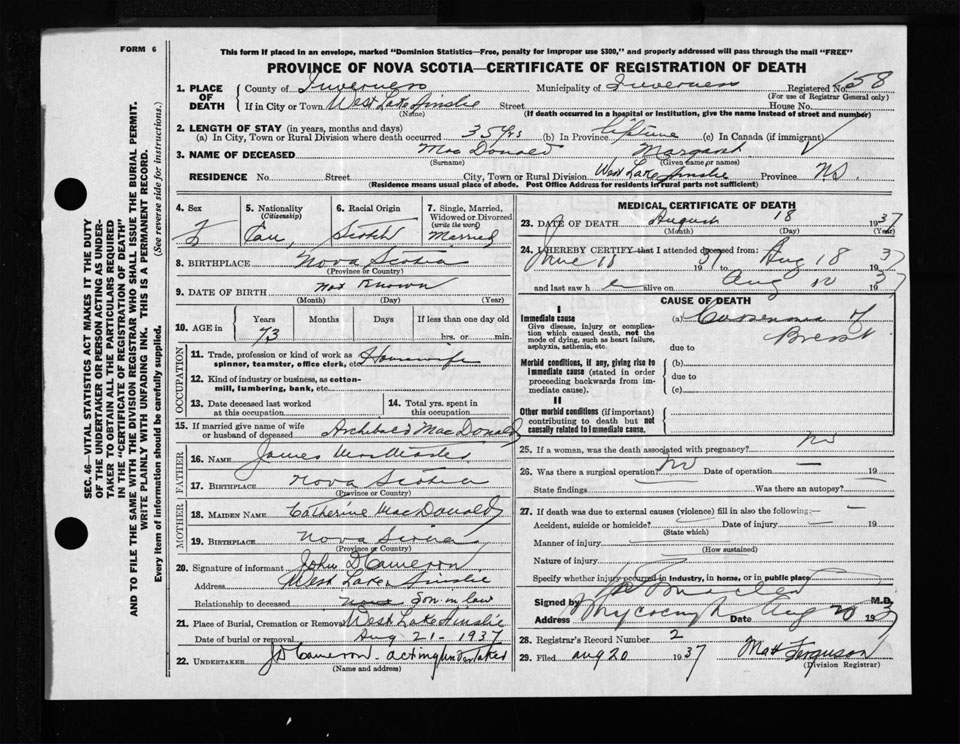 FORM 6
This form if placed in an envelope, marked "Dominion Statistics—Free, penalty for improper use $300," and properly addressed will pass through the mail "FREE"
PROVINCE OF NOVA SCOTIA—CERTIFICATE OF REGISTRATION OF DEATH
SEC. 46—VITAL STATISTICS ACT MAKES IT THE DUTY
OF THE UNDERTAKER OR PERSON ACTING AS UNDER-
TAKER TO OBTAIN ALL THE PARTICULARS REQUIRED
IN THE "CERTIFICATE OF REGISTRATION OF DEATH"
AND TO FILE THE SAME WITH THE DIVISION REGISTRAR WHO SHALL ISSUE THE BURIAL PERMIT.
WRITE PLAINLY WITH UNFADING INK. THIS IS A PERMANENT RECORD.
Every item of information should be carefully supplied. (See reverse side for instructions.)
1. PLACE OF DEATH County of Inverness Municipality of Inverness Registered No. 658
(For use of Registrar General only)
If in City or Town West Lake Ainslie Street House No.
(Name) (If death occurred in a hospital or institution, give the name instead of street and number)
2. LENGTH OF STAY (in years, months and days)
(a) In City, Town or Rural Division where death occurred 35 yrs (b) In Province lifetime (c) In Canada (if immigrant)
3. NAME OF DECEASED MacDonald Margaret
(Surname) (Given name or names)
RESIDENCE No. Street City, Town or Rural Division West Lake Ainslie Province NS
(Residence means usual place of abode. Post Office Address for residents in rural parts not sufficient)
4. Sex F
5. Nationality (Citizenship) Can.
6. Racial Origin Scotch
7. Single, Married, Widowed or Divorced (write the word) Married
8. BIRTHPLACE Nova Scotia
(Province or Country)
9. DATE OF BIRTH Not Known
(Month) (Day) (Year)
10. AGE in Years 73 Months Days If less than one day old hrs. or min.
OCCUPATION
11. Trade, profession or kind of work as spinner, teamster, office clerk, etc. Housewife
12. Kind of industry or business, as cotton-mill, lumbering, bank, etc.
13. Date deceased last worked at this occupation
14. Total yrs. spent in this occupation
15. If married give name of wife or husband of deceased Archibald MacDonald
FATHER
16. Name James
17. BIRTHPLACE Nova Scotia
(Province or Country)
MOTHER
18. MAIDEN NAME Catherine MacDonald
19. BIRTHPLACE Nova Scotia
(Province or Country)
20. Signature of informant John D Cameron
Address West Lake Ainslie
Relationship to deceased Son in law
21. Place of Burial, Cremation or Removal West Lake Ainslie
Date of burial or removal Aug 21 - 1937
22. UNDERTAKER JD Cameron. acting undertaker
(Name and address)
MEDICAL CERTIFICATE OF DEATH
23. DATE OF DEATH August 18 1937
(Month) (Day) (Year)
24. I HEREBY CERTIFY that I attended deceased from:
June 18 1937 Aug 18 1937
and last saw h er alive on Aug 10 1937
CAUSE OF DEATH
I
Immediate cause
Give disease, injury or complication which caused death, not the mode of dying, such as heart failure, asphyxia, asthenia, etc.
(a) Carcinoma of Breast
due to
Morbid conditions, if any, giving rise to immediate cause (stated in order proceeding backwards from immediate cause).
(b)
due to
(c)
II
Other morbid conditions (if important) contributing to death but not causally related to immediate cause.
25. If a woman, was the death associated with pregnancy? no
26. Was there a surgical operation? no Date of operation — 19
State findings Was there an autopsy?
27. If death was due to external causes (violence) fill in also the following:—
Accident, suicide or homicide? Date of injury — 19
(State which)
Manner of injury
(How sustained)
Nature of injury
Specify whether injury occurred in industry, in home, or in public place
Signed by M.D.
Address Whycocomagh Date Aug 20 1937
28. Registrar's Record Number 2
29. Filed Aug 20 1937 Mat Ferguson
(Division Registrar)